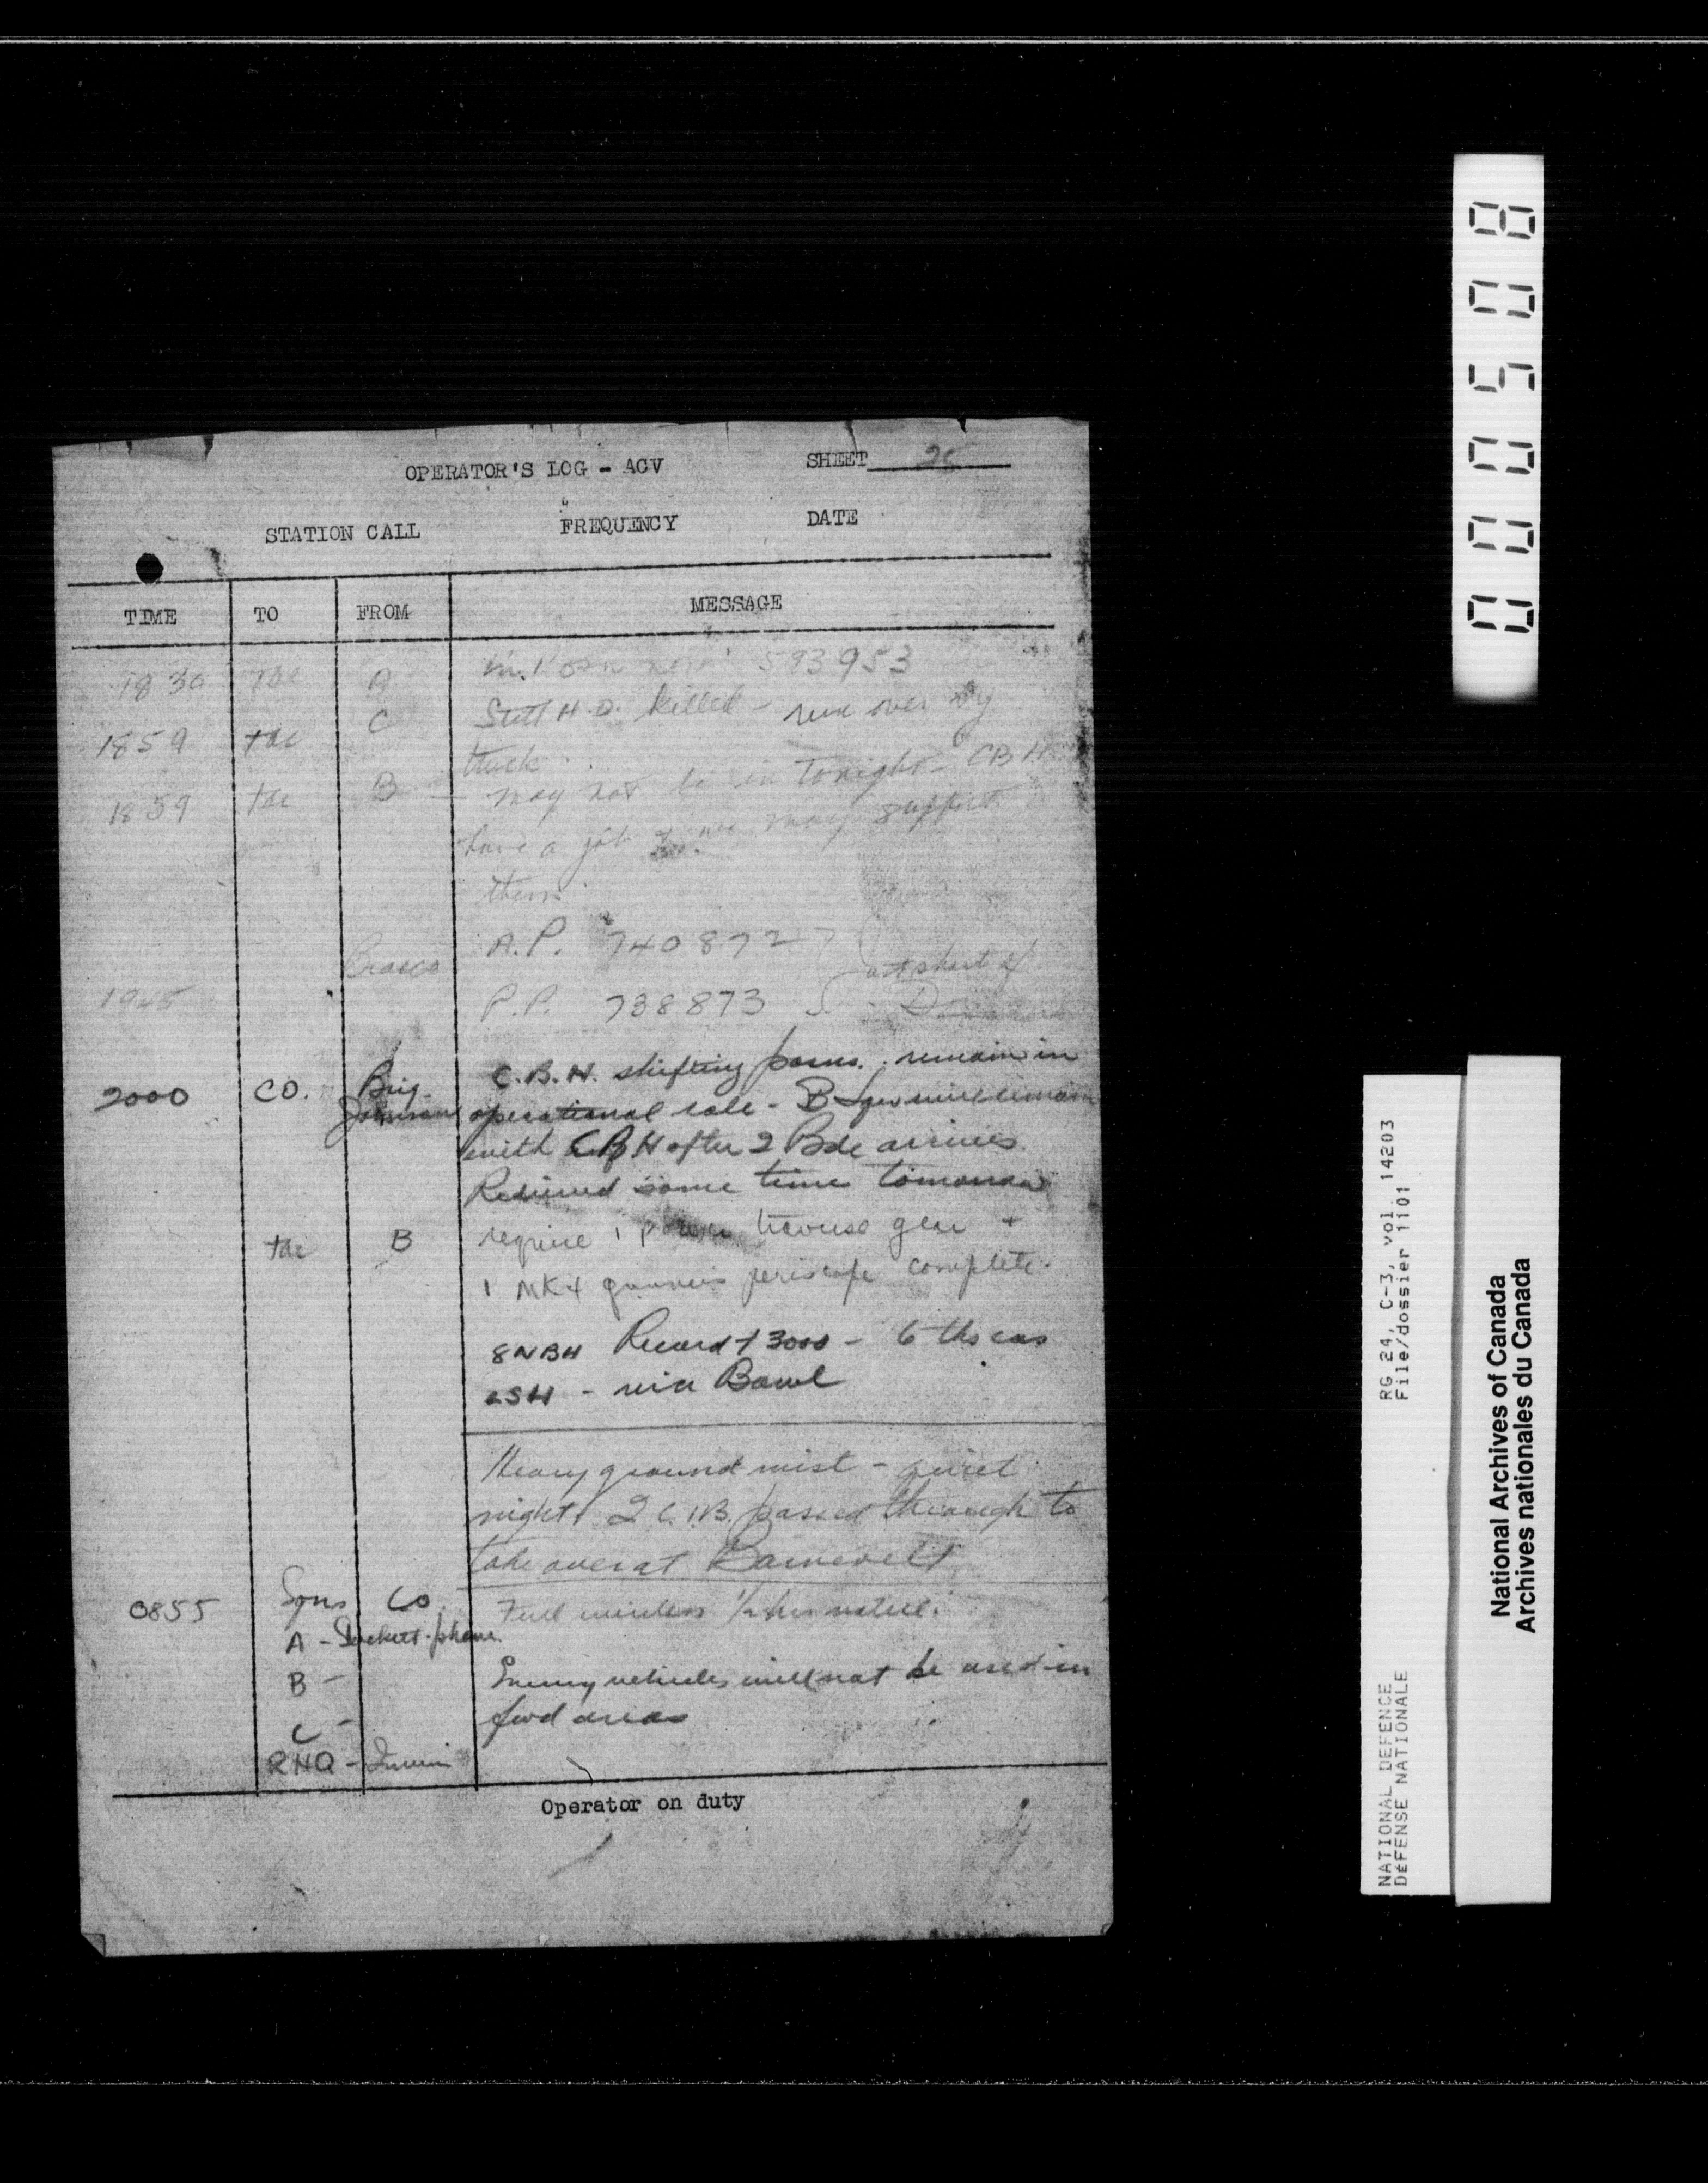 OPERATOR'S LOG - ACV SHEET
STATION CALL FREQUENCY DATE
TIME TO FROM MESSAGE
1830 tac A in now 593953
1859 tac C Still H.Q. killed - run over by
truck.
1859 tac B - may not be in tonight - CBH
have a job & we may support
them.
A.P. 740872
1945 just short of
P.P. 738873
2000 CO. Brig. C.B.H. shifting posns. remain in
Johnson operational role - B Sqn will remain
with CBH after 2 Bde arrives
Relieved some time tomorrow
tac B require 1 power traverse gear +
1 MK4 gunners periscope complete.
8NBH Record + 3000 - 6
LSH - via
Heavy ground mist - quiet
night. 2 C.I.B. passed through to
take over at Barneveld
0855 Sqns CO. Full wireless 1/2 hrs notice.
A - phone.
B - Enemy vehicles will not be used in
C - fwd areas
RHQ - Irwin
Operator on duty
000508
RG 24, C-3, vol. 14203
File/dossier 1101
NATIONAL DEFENCE
DÉFENSE NATIONALE
National Archives of Canada
Archives nationales du Canada